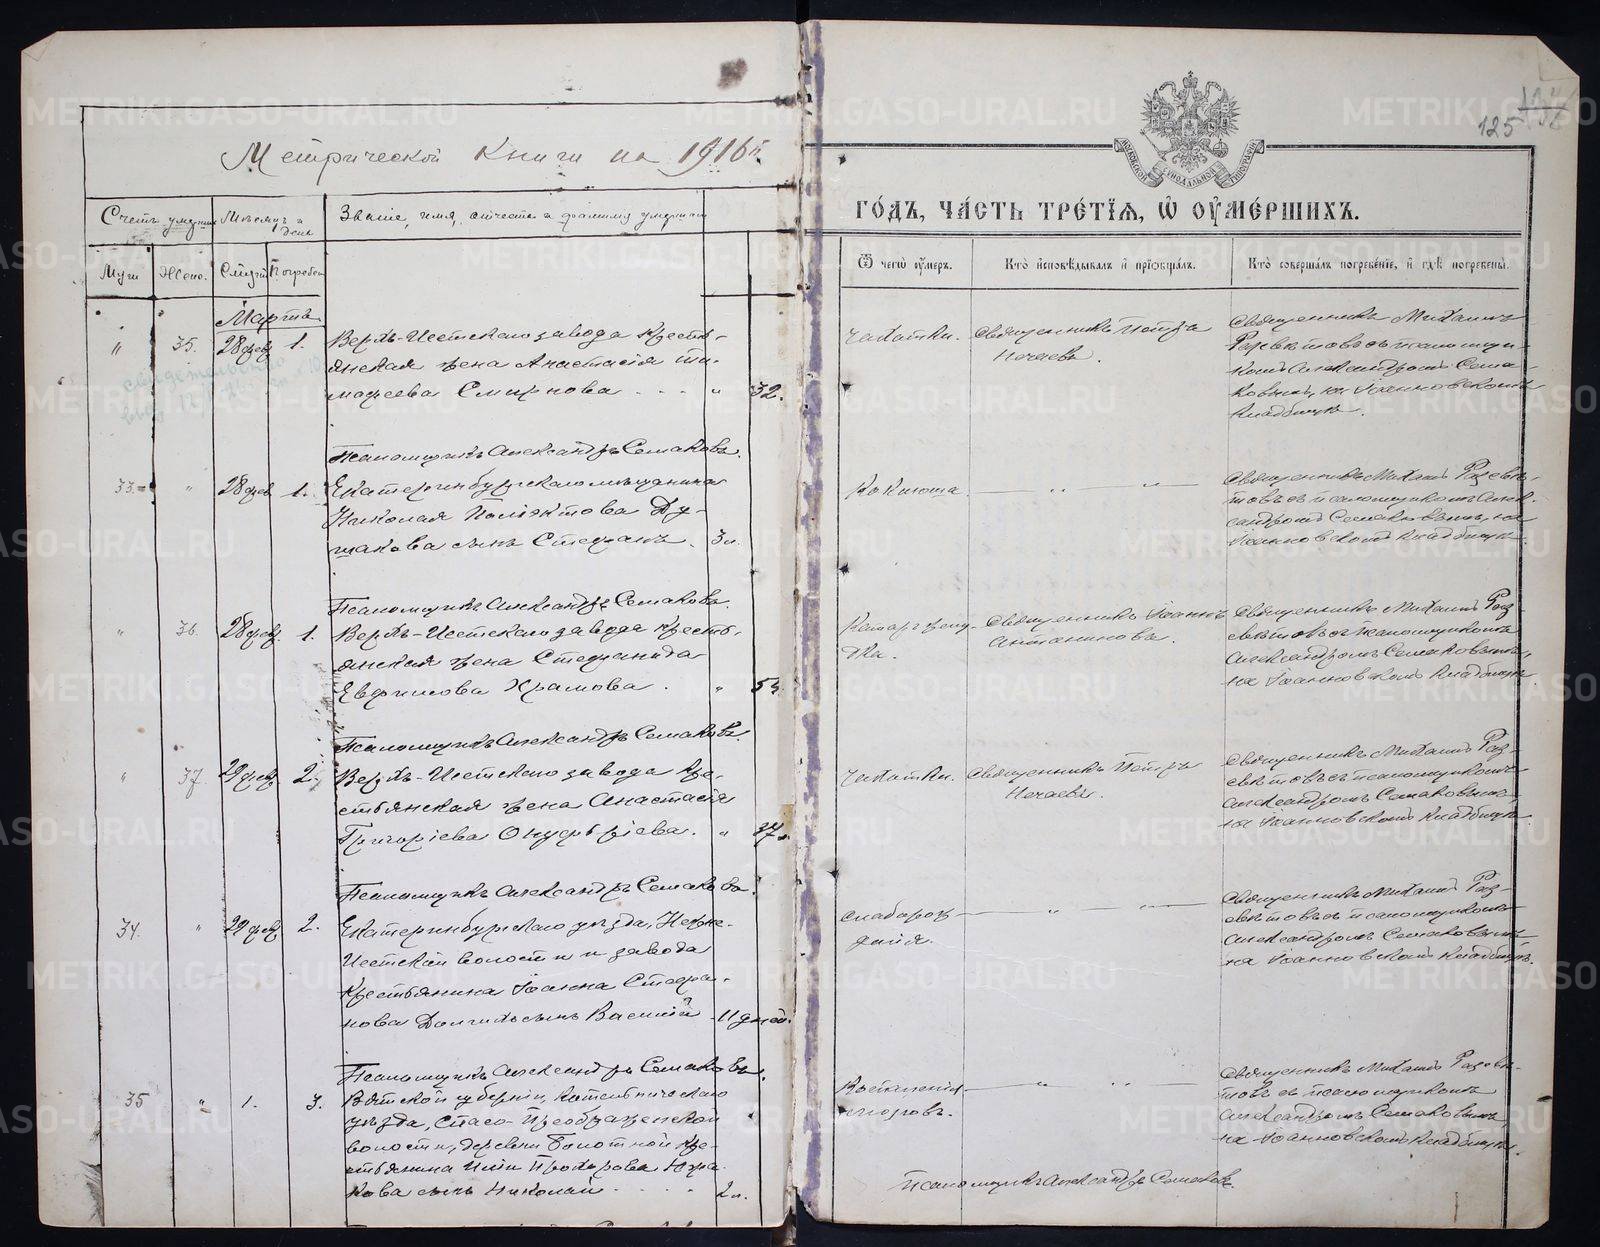 Метрической Книги на 1916 г.
125
ГОДЪ, ЧАСТЬ ТРЕТІЯ, Ѿ ОУМЕРШИХЪ.
Счетъ умерших
Мѣсяцъ и день
Званіе, имя, отчество и фамилія умершаго
Муж.
Жено.
Смерти
Погребен.
Ѿ чегѡ оумеръ.
Кто исповѣдывалъ и пріобщалъ.
Кто совершалъ погребеніе, и гдѣ погребены.
Марта
" 35. 28 фев 1.
Верхъ-Исетскаго завода кресть-
янская жена Анастасія Ти-
мофеева Смирнова " 32.
Чахотки.
Священникъ Петръ
Нечаевъ.
Священникъ Михаилъ
Разсвѣтовъ съ псаломщи-
комъ Александромъ Сема-
ковымъ, на Іоанновскомъ
кладбищѣ.
Псаломщикъ Александръ Семаковъ.
33. " 28 фев 1.
Екатеринбургскаго мѣщанина
Николая Поліэктова Ду-
шакова сынъ Стефанъ. 3 н.
Коклюша. — " — " —
Священникъ Михаилъ Разсвѣ-
товъ съ псаломщикомъ Алек-
сандромъ Семаковымъ, на
Іоанновскомъ кладбищѣ.
Псаломщикъ Александръ Семаковъ.
" 36. 28 фев 1.
Верхъ-Исетскаго завода кресть-
янская жена Стефанида
Евфимова Храмова. "
Священникъ Іоаннъ
Священникъ Михаилъ Раз-
свѣтовъ съ псаломщикомъ
Александромъ Семаковымъ,
на Іоанновскомъ кладбищѣ
Псаломщикъ Александръ Семаковъ.
" 37. 29 фев 2.
Верхъ-Исетскаго завода кре-
стьянская жена Анастасія
Григоріева Онуфріева. " 37.
Чахотки.
Священникъ Петръ
Нечаевъ.
Священникъ Михаилъ Раз-
свѣтовъ съ псаломщикомъ
Александромъ Семаковымъ,
на Іоанновскомъ кладбищѣ.
Псаломщикъ Александръ Семаковъ.
34. " 29 фев 2.
Екатеринбургскаго уѣзда, Нижне-
Исетской волости и завода
крестьянина Іоанна Стефа-
нова Долгихъ сынъ Василій 11 дней.
Слаборож-
денія. — " — " —
Священникъ Михаилъ Раз-
свѣтовъ съ псаломщикомъ
Александромъ Семаковымъ
на Іоанновскомъ кладбищѣ.
Псаломщикъ Александръ Семаковъ.
35 " 1. 3.
Вятской губерніи, Котельническаго
уѣзда, Спасо-Преображенской
волости, деревни Болотной кре-
стьянина Ильи Прохорова
сынъ Николай 2 н.
Воспаленія — " — " —
Священникъ Михаилъ Разсвѣ-
товъ съ псаломщикомъ
Александромъ Семаковымъ,
на Іоанновскомъ кладбищѣ.
Псаломщикъ Александръ Семаковъ
METRIKI.GASO-URAL.RU